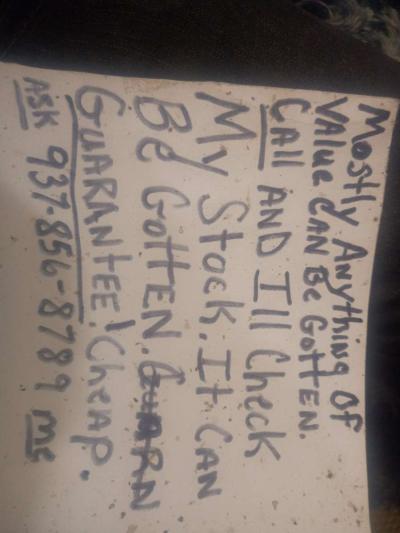 Mostly Anything OF
VAlue CAN Be GOTTEN.
CAll AND I'll Check
My Stock. It CAN
Be GOTTEN. GUARN
GUARANTEE! Cheap.
ASK 937-856-8789 me